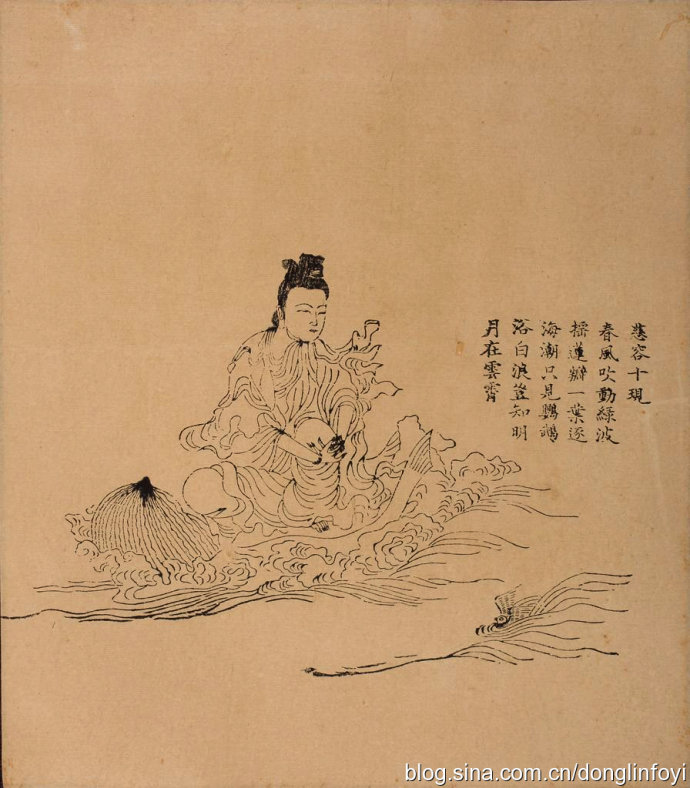 慈容十現
春風吹動綠波
搖蓮瓣一葉逐
海潮只見鸚鵡
浴白浪豈知明
月在雲霄
blog.sina.com.cn/donglinfoyi